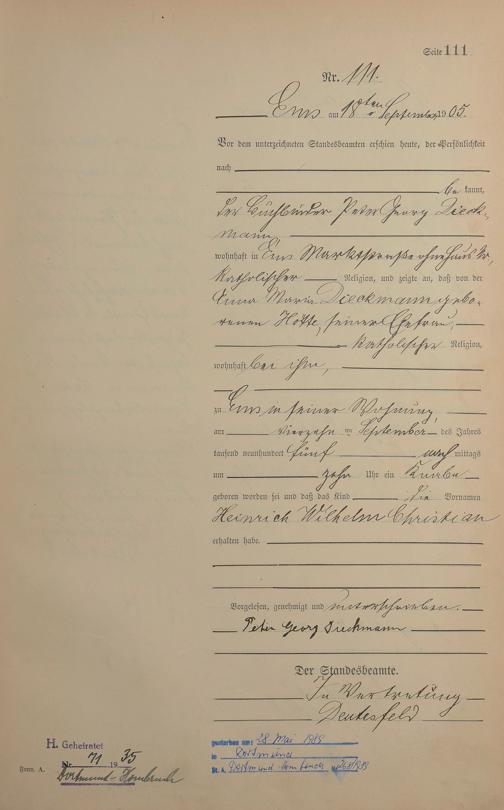 Seite 111
Nr. 111.
Ems am 18ten September 1905.
Vor dem unterzeichneten Standesbeamten erschien heute, der Persönlichkeit
nach
be kannt,
der Buchbinder Peter Georg Dieck-
mann,
wohnhaft in Ems Marktstraße ohne Haus Nr.,
katholischer Religion, und zeigte an, daß von der
Anna Maria Dieckmann gebo-
renen Hotte, seiner Ehefrau,
katholischer Religion,
wohnhaft bei ihm,
zu Ems in seiner Wohnung,
am vierzehn ten September des Jahres
tausend neunhundert fünf nach mittags
um zehn Uhr ein Knabe
geboren worden sei und daß das Kind die Vornamen
Heinrich Wilhelm Christian
erhalten habe.
Vorgelesen, genehmigt und unterschrieben.
Peter Georg Dieckmann
Der Standesbeamte.
In Vertretung
Deutesfeld
H. Geheiratet
Nr. 71 1935
Form. A. Dortmund-Hombruch
gestorben am: 28. Mai 1989
in Dortmund
Nr. A. Dortmund